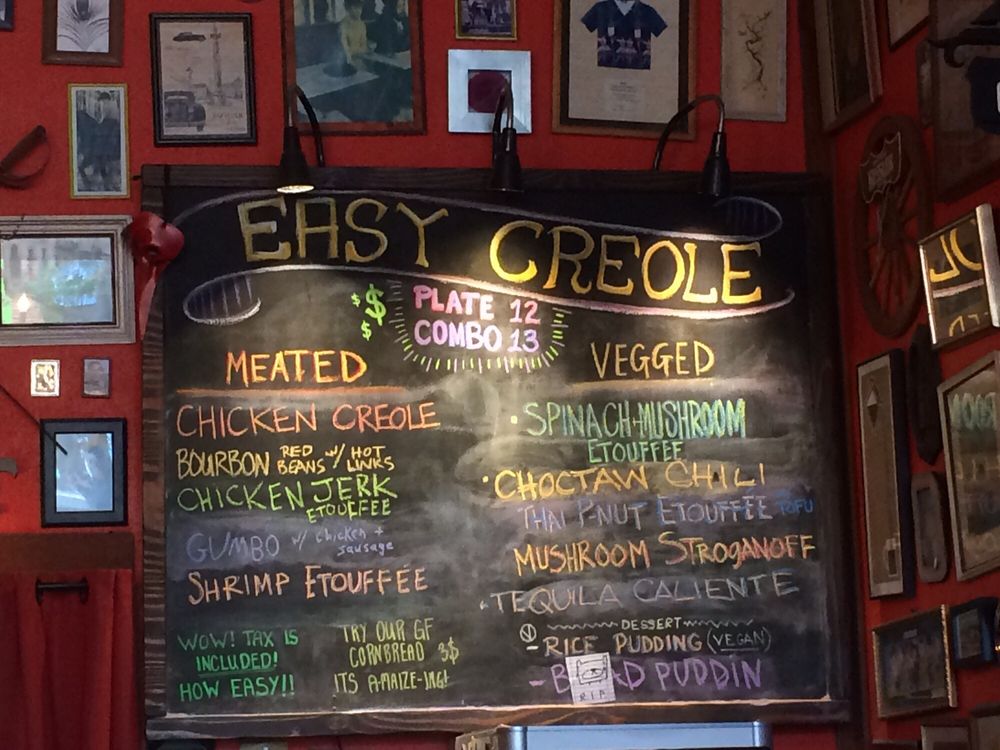 EASY CREOLE
$ $ $
PLATE 12
COMBO 13
MEATED
CHICKEN CREOLE
BOURBON RED BEANS W/ HOT LINKS
CHICKEN JERK
ETOUFFEE
GUMBO W/ Chicken + Sausage
SHRIMP ETOUFFÉE
WOW! TAX IS
INCLUDED!
HOW EASY!!
TRY OUR GF
CORNBREAD 3$
ITS A-MAIZE-ING!
VEGGED
· SPINACH+MUSHROOM
ETOUFFEE
· CHOCTAW CHILI
THAI P-NUT ETOUFFÉE TOFU
MUSHROOM STROGANOFF
· TEQUILA CALIENTE
DESSERT
V - RICE PUDDING (VEGAN)
- B AD PUDDIN
R.I.P